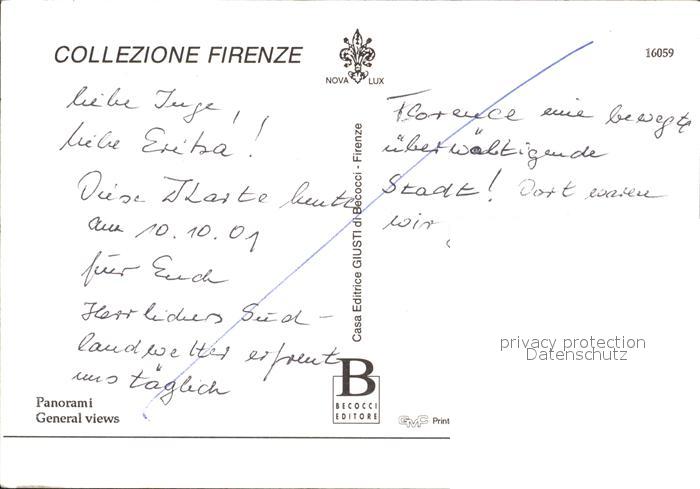 COLLEZIONE FIRENZE
NOVA LUX
16059
liebe Inge,
liebe Erika!
Diese Karte heute
am 10.10.01
für Euch
Herrliches Süd-
landwetter erfreut
uns täglich
Florence eine bewegte
überwältigende
Stadt! Dort waren
wir
Casa Editrice GIUSTI di Becocci - Firenze
privacy protection
Datenschutz
Panorami
General views
B
BECOCCI
EDITORE
GMC Print